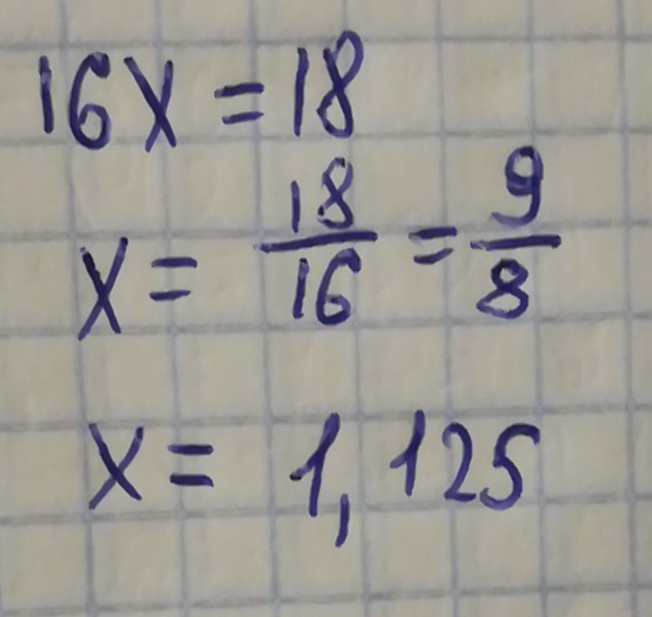 16x = 18
x = 18/16 = 9/8
x = 1,125